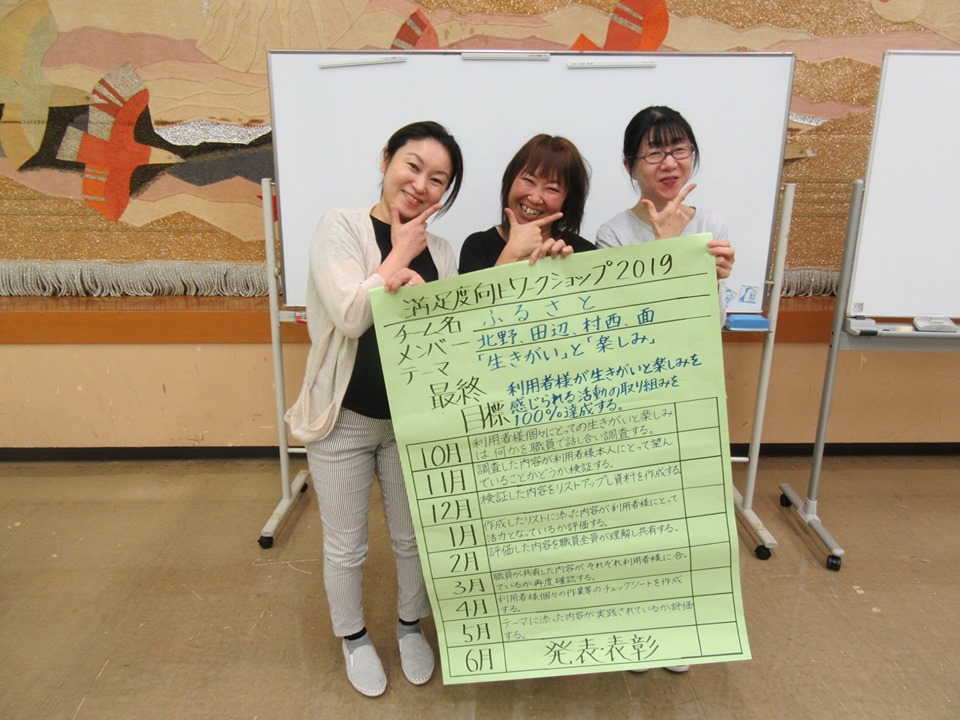 満足度向上ワークショップ2019
チーム名 ふるさと
メンバー 北野、田辺、村西、面
テーマ 「生きがい」と「楽しみ」
最終目標 利用者様が生きがいと楽しみを
感じられる活動の取り組みを
100%達成する。
10月 利用者様個々にとっての生きがいと楽しみ
は、何かを職員で話し合い調査する。
11月 調査した内容が利用者様本人にとって望ん
でいることかどうか検証する。
12月 検証した内容をリストアップし資料を作成する
1月 作成したリストに添った内容が利用者様にとって
活力となっているか評価する。
2月 評価した内容を職員全員が理解し共有する。
3月 職員が共有した内容が、それぞれ利用者様に合っ
ているか再度確認する。
4月 利用者様個々の作業等のチェックシートを作成
する。
5月 テーマに添った内容が実践されているか評価
する。
6月 発表・表彰